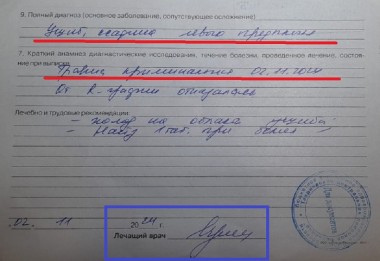 9. Полный диагноз (основное заболевание, сопутствующее осложнение)
Ушиб, ссадина левого предплечья
7. Краткий анамнез диагностические исследования, течение болезни, проведенное лечение, состоя-
ние при выписке
Травма криминальная 02.11.2024
От R-графии отказалась
Лечебно и трудовые рекомендации
- холод на область ушиба
- 1 таб. при болях
02. 11 2024 г.
Лечащий врач